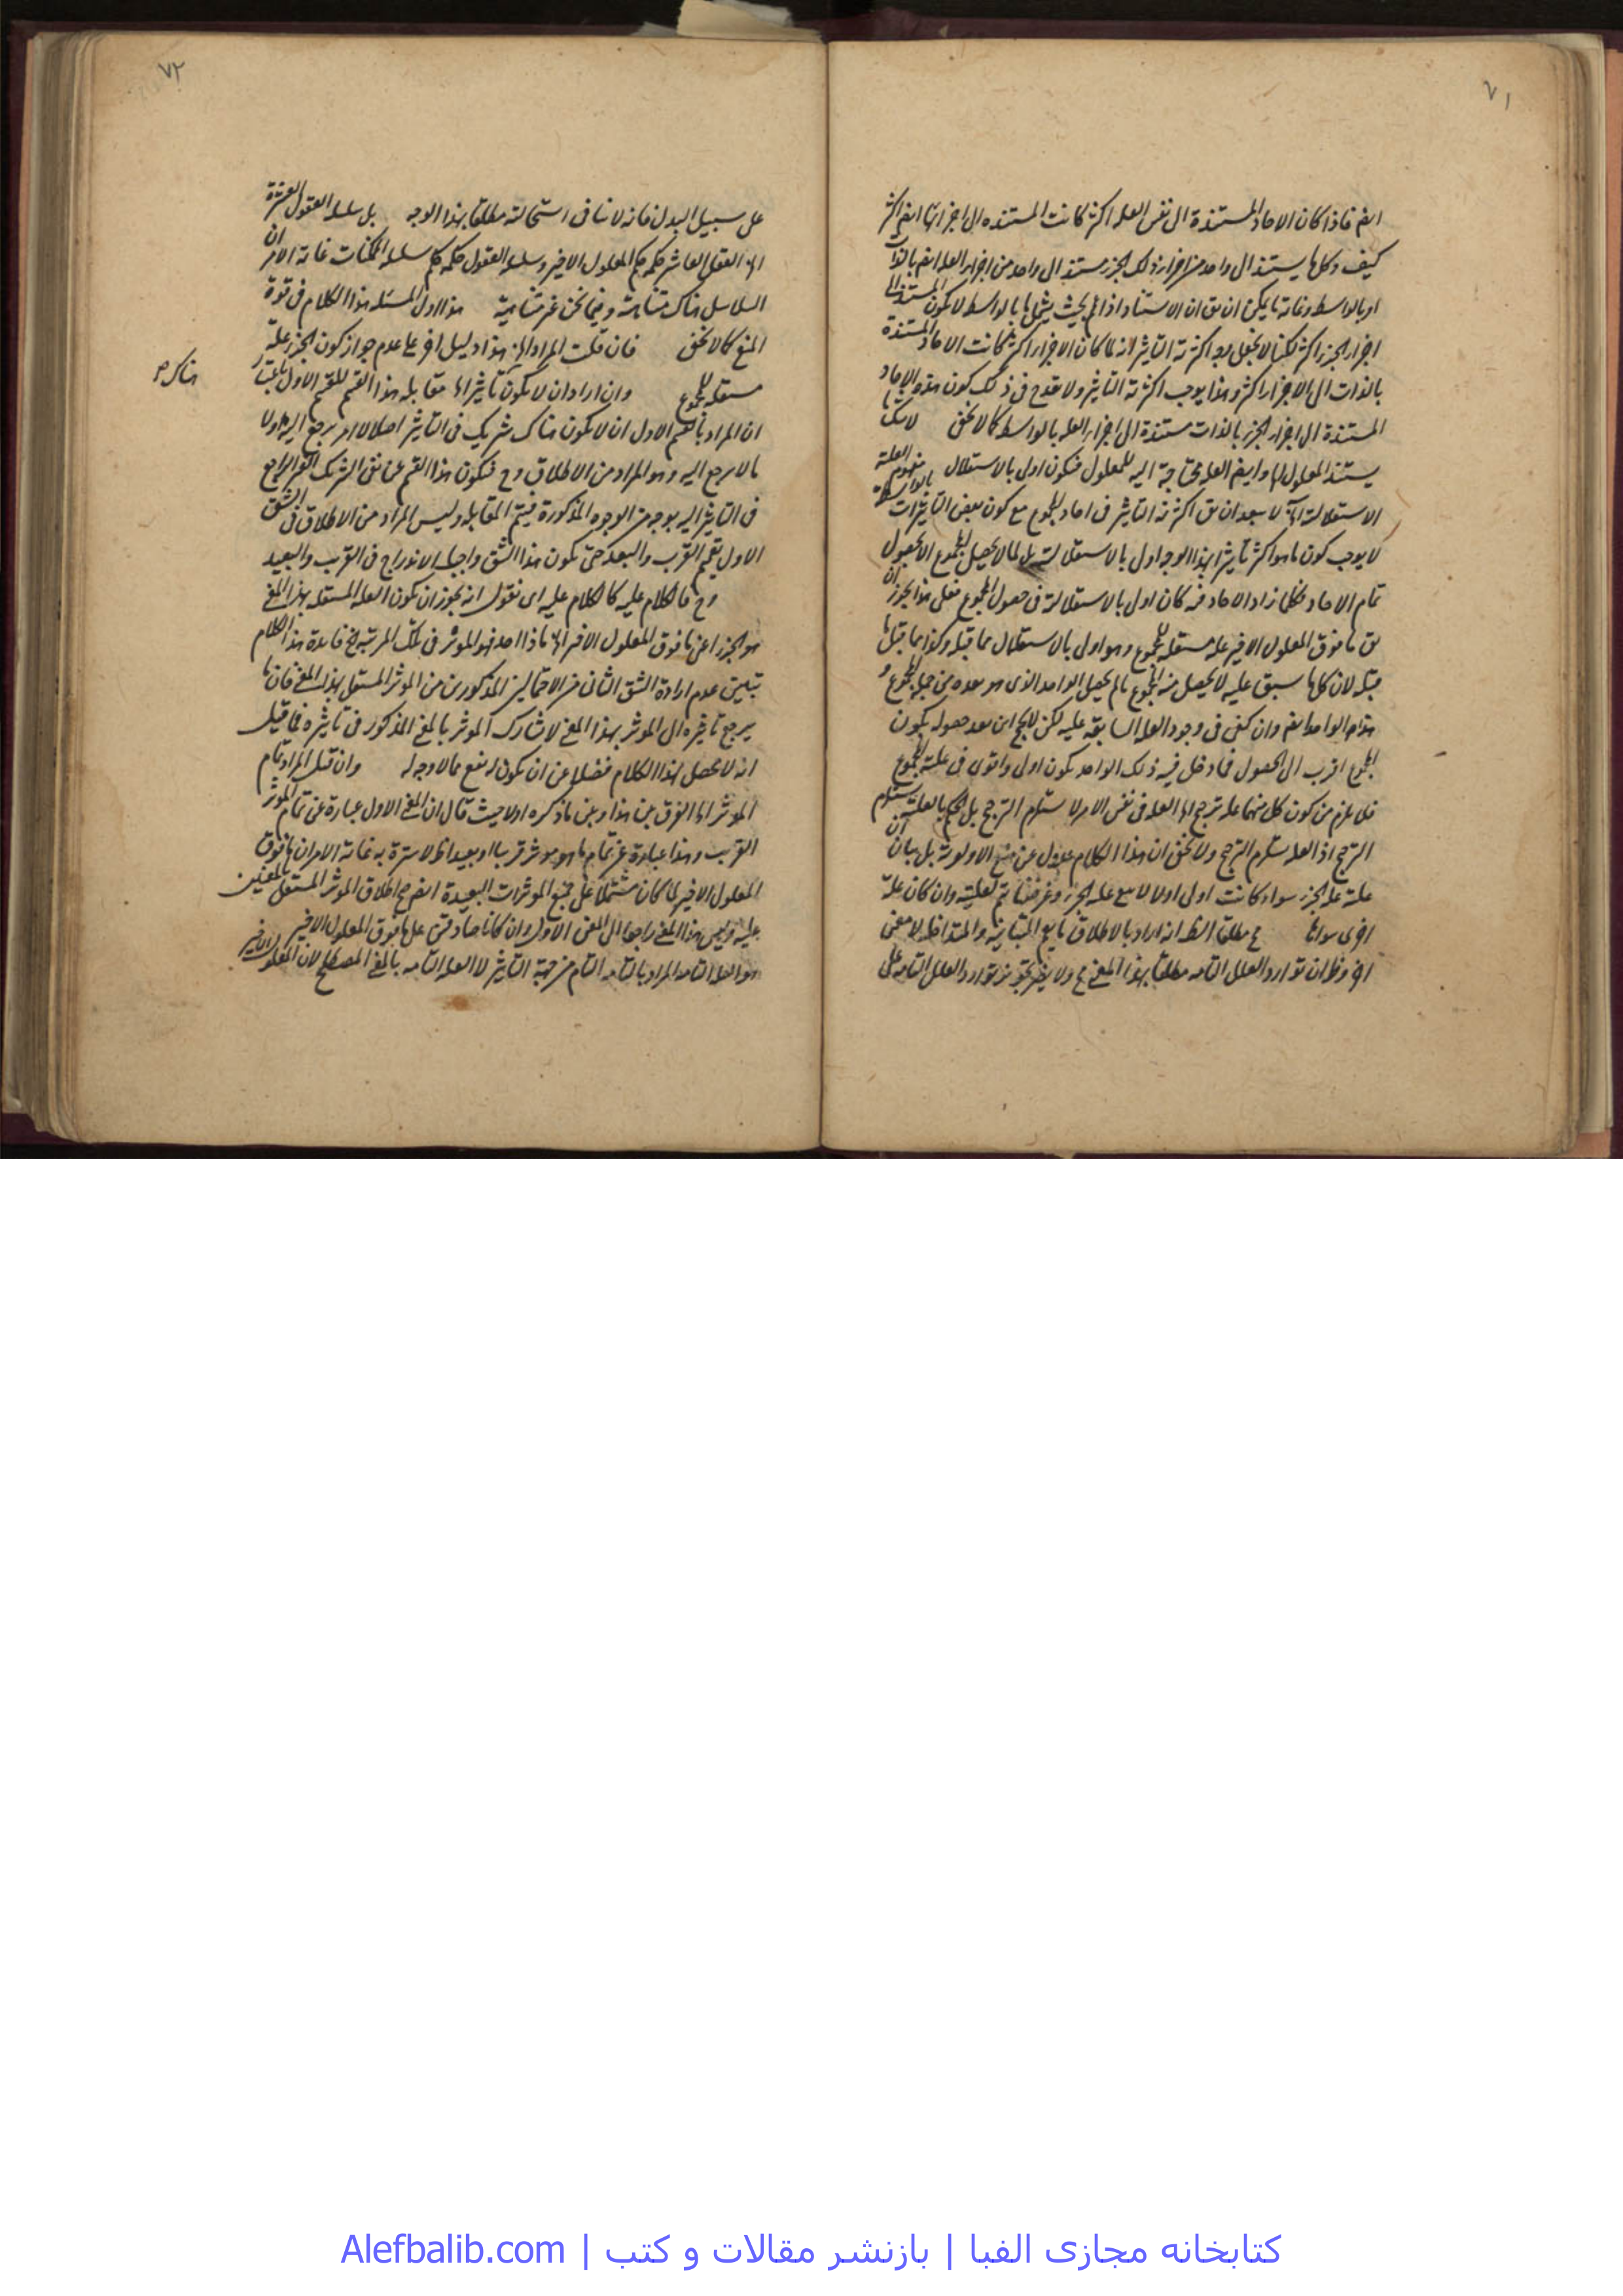 ٧١
ايض فاذا كان الاحاد المستندة الى نفس العلة اكثر كانت المستنده الى اجزائها ايض اكثر
كيف وكلما يستند الى واحد من اجزاء ذلك الجزء مستند الى واحد من اجزاء العلة ايض بالذات
او بالواسطه وغاية ما يمكن ان يق ان الاستناد اذا اخذ بحيث يشمل ما بالواسطه لا يكون المستند الى
اجزاء الجزء اكثر لكنا لا نجعل اكثرية التاثير انه لما كان الاجزاء اكثر كانت الاحاد المستندة
بالذات الى الاجزاء اكثر وهذا يوجب اكثرية التاثير ولا يقدح فى ذلك كون هذه الاحاد
المستندة الى اجزاء الجزء بالذات مستندة الى اجزاء العله بالواسطه كما لا يخفى
يستند المعلول اليها وايض العله محتاجة اليه للمعلول فيكون اولى بالاستقلال مفهوم العلة
الاستقلالية لا يبعد ان يق اكثرية التاثير فى احاد المجموع مع كون بعض التاثيرات بالواسطة
لا يوجب كون ما هو اكثر تاثيرا بهذا الوجه اولى بالاستقلالية بل لما لا يحصل المجموع الا بحصول
تمام الاحاد فكلما زاد الاحاد فيه كان اولى بالاستقلالية فى حصول المجموع فعلى هذا يجوز ان
يق ما فوق المعلول الاخير علة مستقلة للمجموع وهو اولى بالاستقلال مما قبله وكذا مما قبل ما
قبله لان كلما سبق عليه لا يحصل منه المجموع ما لم يحصل الواحد الذى هو بعده من جملة المجموع و
هذا الواحد ايض وان كفى فى وجود العلة السابقة عليه لكن بعد حصوله يكون
المجموع اقرب الى الحصول فما دخل فيه ذلك الواحد يكون اولى واقوى فى علية المجموع
فلا يلزم من كون كل منهما علة ترجيح العله فى نفس الامر لا يستلزم الترجيح بل الحكم بالعلية يستلزم
الترجيح اذ العلة يستلزم الترجيح ولا يخفى ان هذا الكلام عدول عن منع الاولوية بل بيان ان
علية علة الجزء سواء كانت اولى او لا لا يمنع علية الجزء وغرضنا يتم بعليته وان كان علة
اخرى سواها مطلقا الظ انه اراد بالاطلاق ما يعم المتباينة والمتداخلة لا معنى
اخر وظ ان توارد العلل التامه مطلقا بهذا المعنى مح ولا يضر تجويز توارد العلل التامه على
٧٢
على سبيل البدل فانه لا ينافى استحالته مطلقا بهذا الوجه بل سلسلة العقول العشرة
العقل العاشر حكمه حكم المعلول الاخير وسلسلة العقول حكمه حكم سلسلة الممكنات غاية الامر ان
السلاسل هناك متناهية وفيما نحن غير متناهية هذا اول المسئله هذا الكلام فى قوة
المنع كما لا يخفى فان قلت المراد هذا دليل اخر على عدم جواز كون الجزء علة
مستقله للمجموع وان اراد ان لا يكون تاثيرا مقابلة هذا القسم للقسم الاول باعتبار
هناك م
ان المراد بالقسم الاول ان لا يكون هناك شريك فى التاثير اصلا لا امر يرجع اليه ولا
ما لا يرجع اليه وهو المراد من الاطلاق وح فيكون هذا القسم عن نفى الشريك الغير الراجع
فى التاثير اليه بوجه من الوجوه المذكورة فيتم المقابله وليس المراد من الاطلاق فى الشق
الاول تعميم القرب والبعد حتى يكون هذا الشق واجب الاندراج فى القرب والبعيد
وح فالكلام عليه كالكلام عليه اى نقول انه يجوز ان يكون العلة المستقله بهذا المعنى
هو الجزء اعنى ما فوق المعلول الاخير فى تلك المرتبة فائدة هذا الكلام
تبيين عدم ارادة الشق الثانى من الاحتمالين المذكورين من الموثر المستقل بهذا المعنى فان ما
يرجع تاثيره الى الموثر بهذا المعنى لا يشارك الموثر بالمعنى المذكور فى تاثيره فما قيل
انه لا محصل لهذا الكلام فضلا عن ان يكون له نفع مما لا وجه له وان قيل المراد تمام
الموثر الفرق بين هذا وبين ما ذكره اولا حيث قال ان المعنى الاول عبارة عن تمام الموثر
القريب وهذا عبارة عن تمام ما هو موثر قريبا او بعيدا لا سترة به غاية الامر ان ما فوق
المعلول الاخير لما كان مشتملا على جميع الموثرات البعيدة ايض صح اطلاق الموثر المستقل بالمعنيين
عليه وليس هذا المعنى راجعا الى المعنى الاول وان كانا صادقين على ما فوق المعلول الاخير
هو العلة التامه المراد بالتامه التام من جهة التاثير لا العلة التامه بالمعنى المصطلح لان المعلول الاخير
کتابخانه مجازی الفبا | بازنشر مقالات و کتب | Alefbalib.com